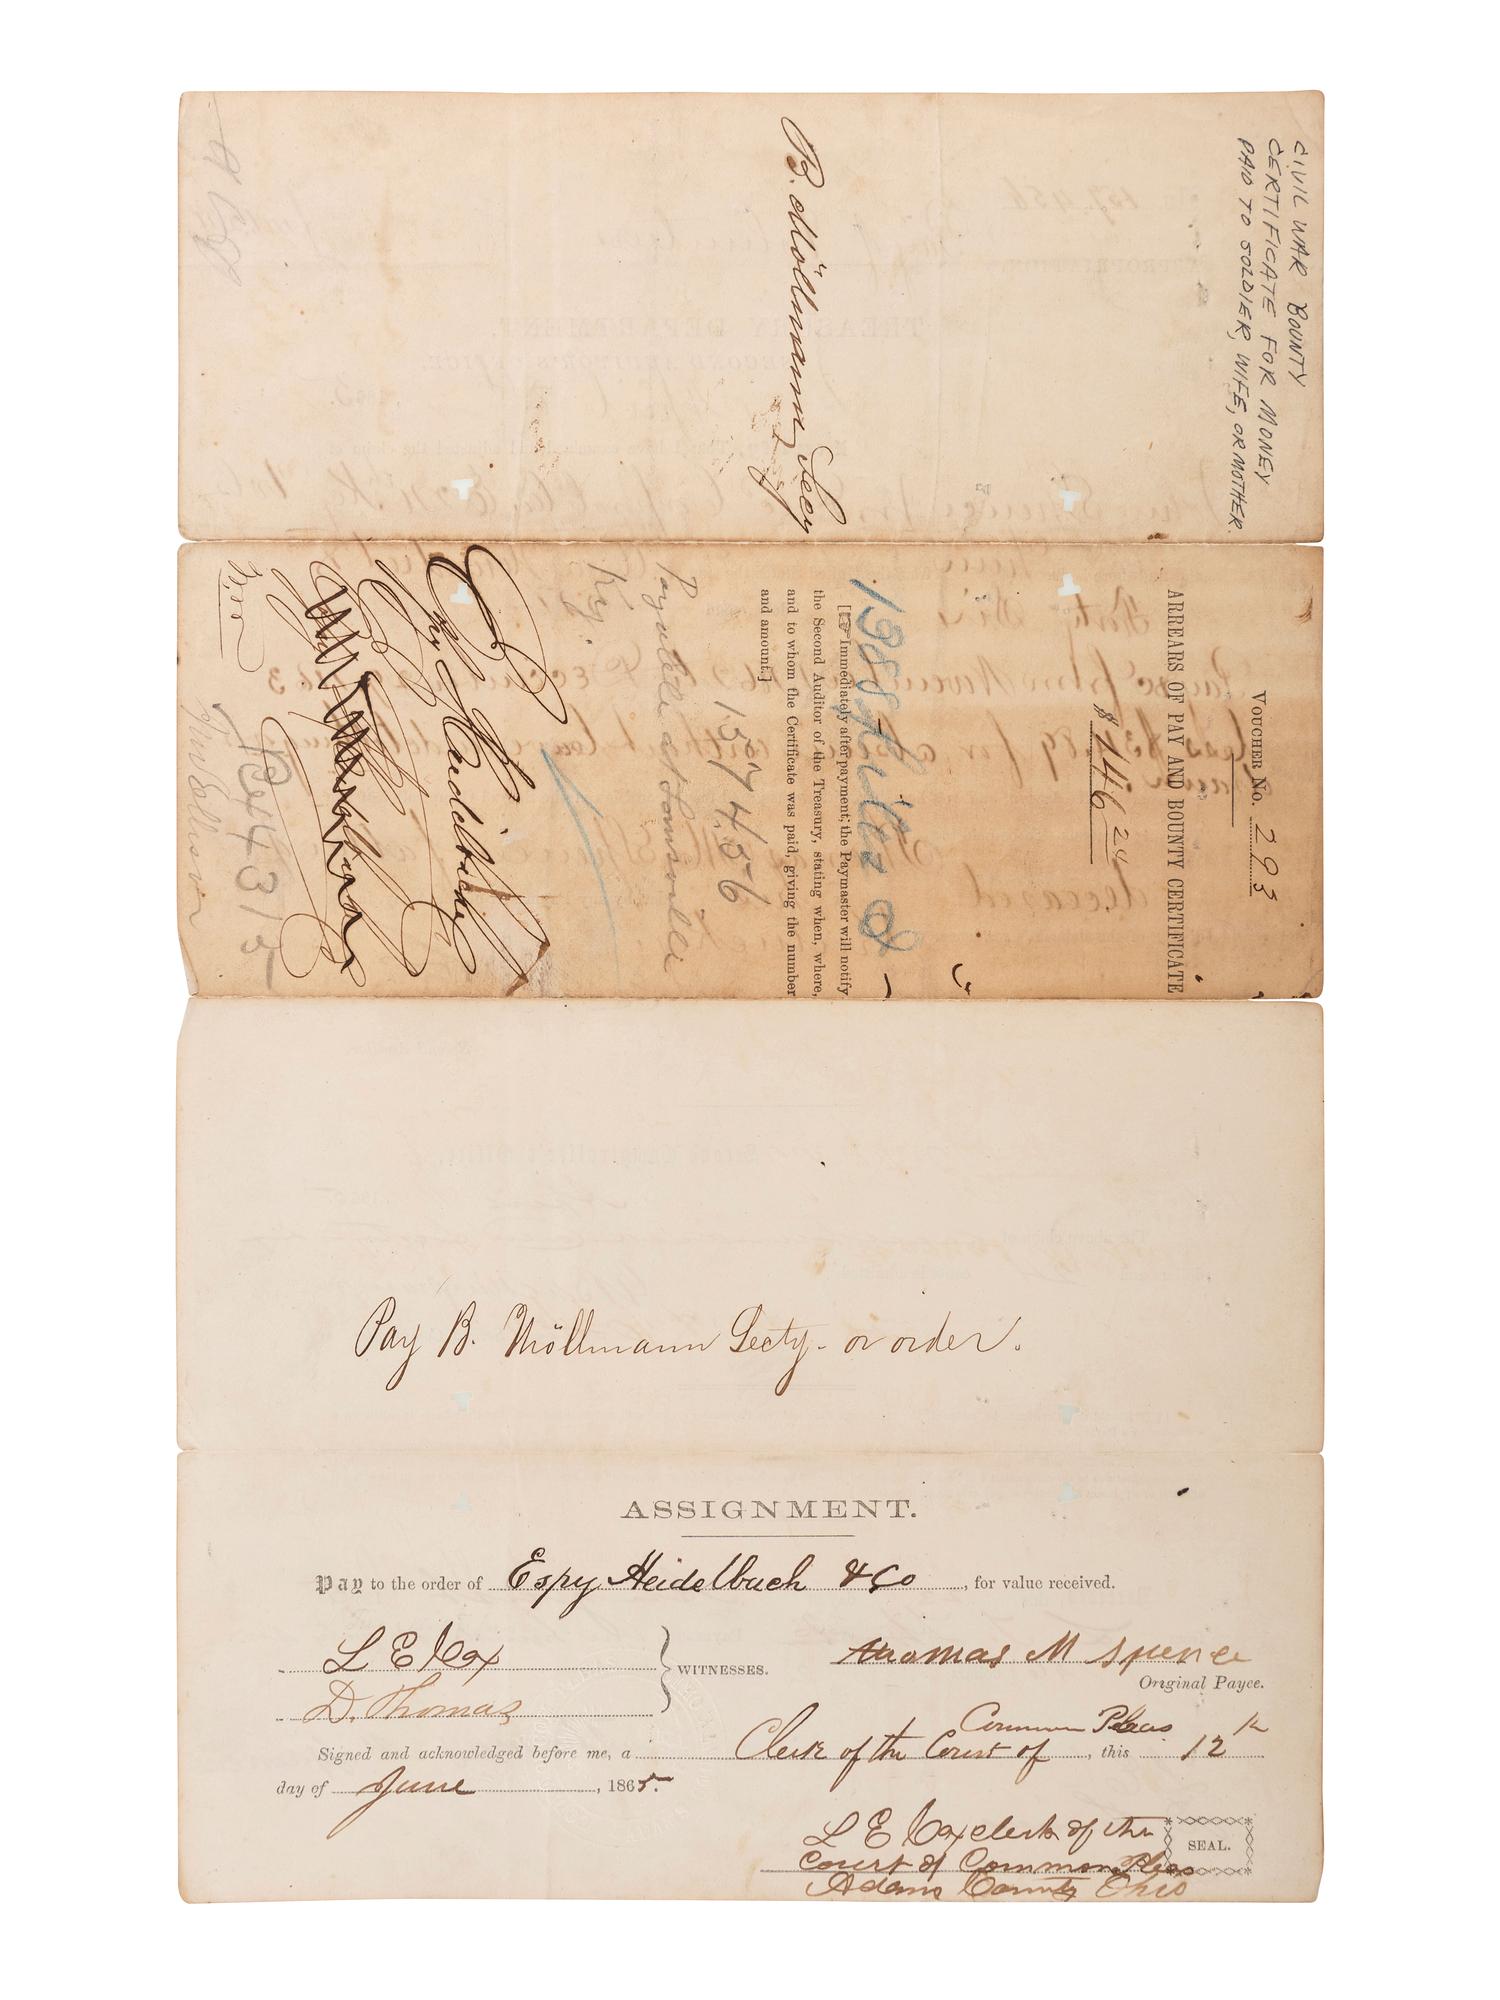 CIVIL WAR BOUNTY
CERTIFICATE FOR MONEY
PAID TO SOLDIER, WIFE, OR MOTHER.
B. Möllmann, Secy
VOUCHER No. 293
ARREARS OF PAY AND BOUNTY CERTIFICATE
$ 146 24
[Immediately after payment, the Paymaster will notify
the Second Auditor of the Treasury, stating when, where,
and to whom the Certificate was paid, giving the number
and amount.]
157456
Payable at Louisville
Ky.
Espy Heidelbach
Pay B. Möllmann Secty- or order.
ASSIGNMENT.
Pay to the order of Espy Heidelbach & Co, for value received.
L E Cox
D. Thomas
WITNESSES.
Thomas M Spence
Original Payee.
Common Pleas
Signed and acknowledged before me, a Clerk of the Court of, this 12th
day of June, 1865.
L E Cox clerk of the
Court of Common Pleas
Adams County Ohio
SEAL.